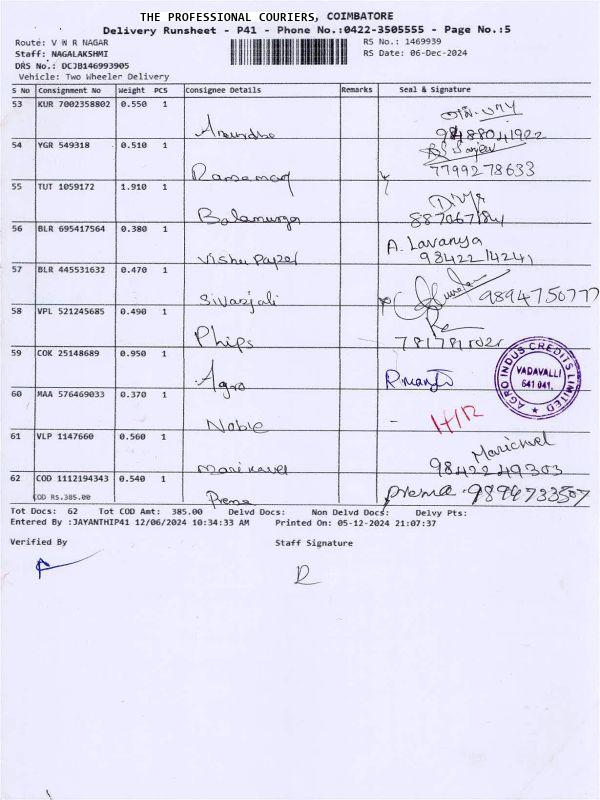 THE PROFESSIONAL COURIERS, COIMBATORE
Delivery Runsheet - P41 - Phone No.:0422-3505555 - Page No.:5
Route: V N R NAGAR
RS No.: 1469939
Staff: NAGALAKSHMI
RS Date: 06-Dec-2024
DRS No.: DCJB146993905
Vehicle: Two Wheeler Delivery
S No Consignment No Weight PCS Consignee Details Remarks Seal & Signature
53 KUR 7002358802 0.550 1
9488041922
54 YGR 549318 0.510 1
7799278633
55 TUT 1059172 1.910 1
Balamurga Divya
56 BLR 695417564 0.380 1
Vishu Papel A. Lavanya
9842214241
57 BLR 445531632 0.470 1
Sivanjali
58 VPL 521245685 0.490 1
Phips
59 COK 25148689 0.950 1
Agro
AGRO INDUS CREDITS LIMITED
VADAVALLI
641 041.
60 MAA 576469033 0.370 1
Noble -
61 VLP 1147660 0.560 1
Marikavel 9842249303
62 COD 1112194343 0.540 1
COD Rs.385.00
Prema Prema
Tot Docs: 62 Tot COD Amt: 385.00 Delvd Docs: Non Delvd Docs: Delvy Pts:
Entered By :JAYANTHIP41 12/06/2024 10:34:33 AM Printed On: 05-12-2024 21:07:37
Verified By Staff Signature